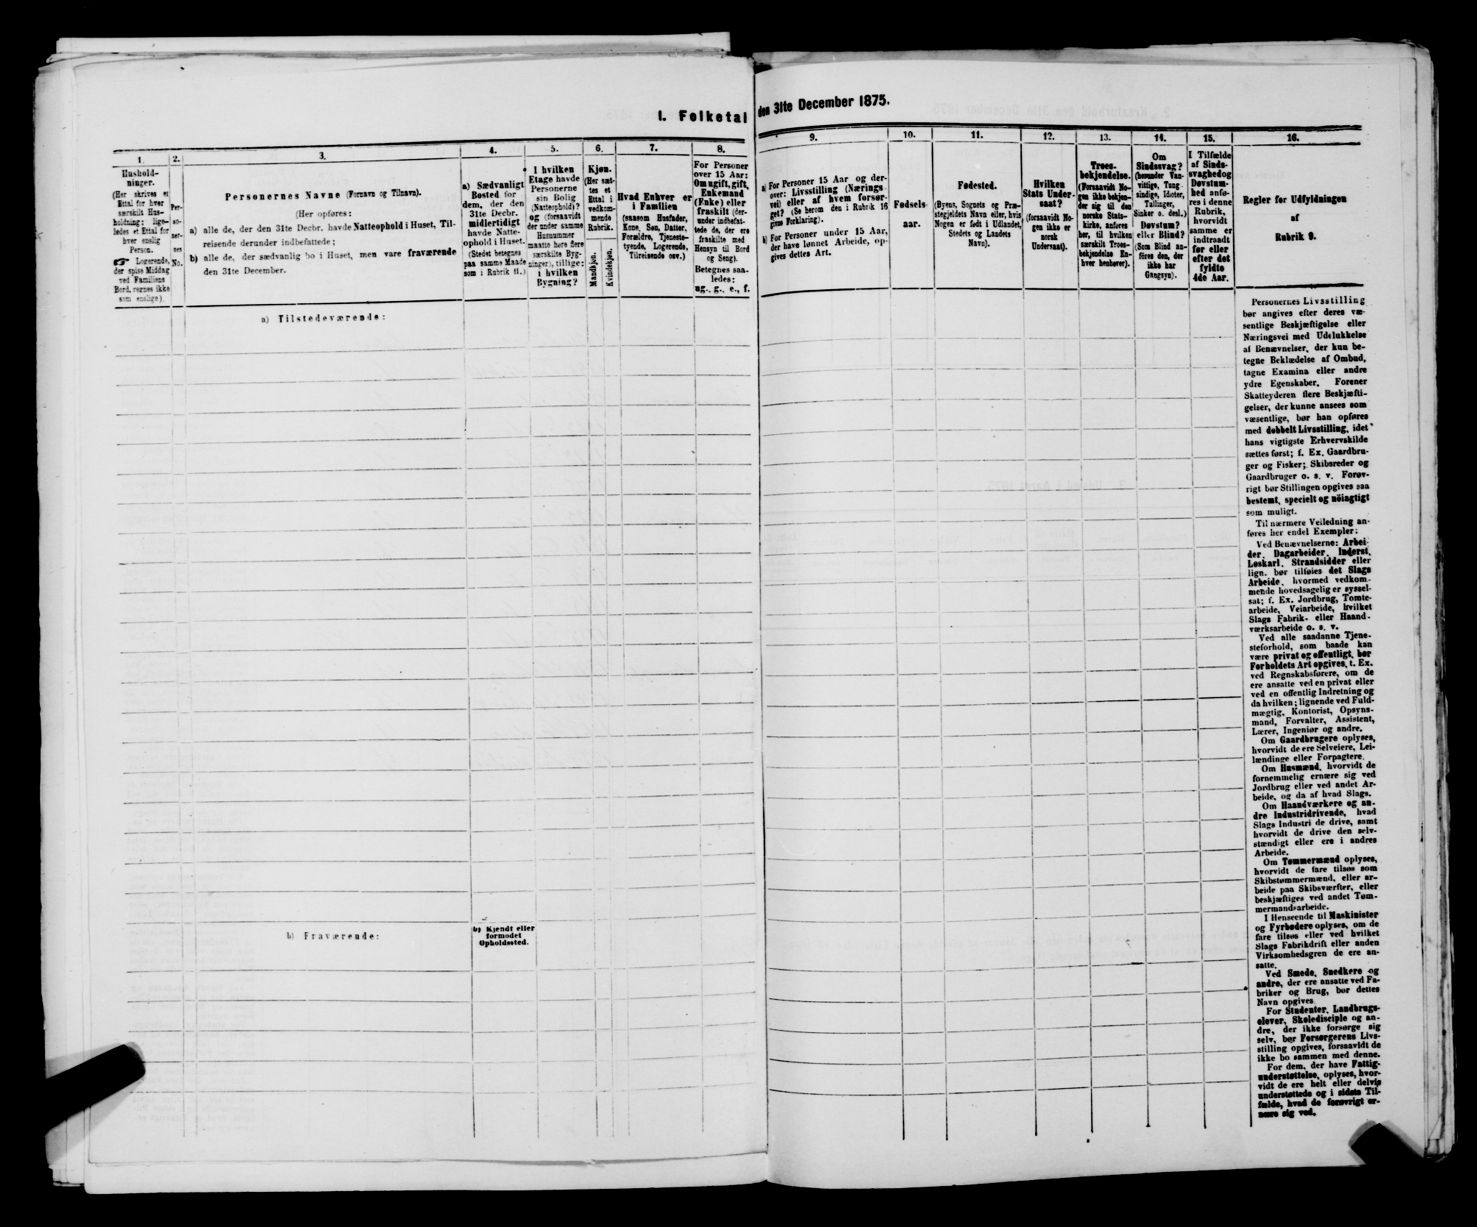 I. Folketal
den 31te December 1875.
1.
Hushold-
ninger.
(Her skrives et
Ettal for hver
særskilt Hus-
holdning; lige-
ledes et Ettal for
hver enslig
Person.
☞ Logerende,
der spise Middag
ved Familiens
Bord, regnes ikke
som enslige).
2.
Per-
so-
ner-
nes
No.
3.
Personernes Navne (Fornavn og Tilnavn).
(Her opføres:
a) alle de, der den 31te Decbr. havde Natteophold i Huset, Til-
reisende derunder indbefattede;
b) alle de, der sædvanlig bo i Huset, men vare fraværende
den 31te December.
4.
a) Sædvanligt
Bosted for
dem, der den
31te Decbr.
midlertidigt
havde Natte-
ophold i Huset.
(Stedet betegnes
paa samme Maade
som i Rubrik 11.)
5.
I hvilken
Etage havde
Personerne
sin Bolig
(Natteophold)?
og (forsaavidt
der under samme
Husnummer
maatte høre flere
særskilte Byg-
ninger), tillige:
i hvilken
Bygning?
6.
Kjøn.
(Her sæt-
tes et
Ettal i
vedkom-
mende
Rubrik.
Mandkjøn.
Kvindekjøn.
7.
Hvad Enhver er
i Familien
(saasom Husfader,
Kone, Søn, Datter,
Forældre, Tjeneste-
tyende, Logerende,
Tilreisende osv.)
8.
For Personer
over 15 Aar:
Om ugift, gift,
Enkemand
(Enke) eller
fraskilt (der-
under indbefat-
tede de, der ere
fraskilte med
Hensyn til Bord
og Seng).
Betegnes saa-
ledes:
ug., g., e., f.
9.
a) For Personer 15 Aar og der-
over: Livsstilling (Nærings
vei) eller af hvem forsør-
get? (Se herom den i Rubrik 16
givne Forklaring).
b) For Personer under 15 Aar,
der have lønnet Arbeide, op-
gives dettes Art.
10.
Fødsels-
aar.
11.
Fødested.
(Byens, Sognets og Præ-
stegjeldets Navn eller, hvis
Nogen er født i Udlandet,
Stedets og Landets
Navn).
12.
Hvilken
Stats Under-
saat?
(forsaavidt No-
gen ikke er
norsk
Undersaat).
13.
Troes-
bekjendelse.
(Forsaavidt No-
gen ikke bekjen-
der sig til den
norske Stats-
kirke, anføres
her, til hvilken
særskilt Troes-
bekjendelse En-
hver henhører).
14.
Om
Sindssvag?
(herunder Van-
vittige, Tung-
sindige, Idioter,
Tullinger,
Sinker o. desl.)
Døvstum?
eller Blind?
(Som Blind an-
føres den, der
ikke har
Gangsyn).
15.
I Tilfælde
af Sinds-
svaghed og
Døvstum-
hed anfø-
res i denne
Rubrik,
hvorvidt
samme er
indtraadt
før eller
efter det
fyldte
4de Aar.
16.
Regler for Udfyldningen
af
Rubrik 9.
a) Tilstedeværende:
b) Fraværende:
b) Kjendt eller
formodet
Opholdssted.
Personernes Livsstilling
bør angives efter deres væ-
sentlige Beskjæftigelse eller
Næringsvei med Udelukkelse
af Benævnelser, der kun be-
tegne Beklædelse af Ombud,
tagne Examina eller andre
ydre Egenskaber. Forener
Skatteyderen flere Beskjæfti-
gelser, der kunne ansees som
væsentlige, bør han opføres
med dobbelt Livsstilling, idet
hans vigtigste Erhvervskilde
sættes først; f. Ex. Gaardbru-
ger og Fisker; Skibsreder og
Gaardbruger o. s. v. Forøv-
rigt bør Stillingen opgives saa
bestemt, specielt og nøiagtigt
som muligt.
Til nærmere Veiledning an-
føres her endel Exempler:
Ved Benævnelserne: Arbei-
der, Dagarbeider, Inderst,
Løskarl, Strandsidder eller
lign. bør tilføies det Slags
Arbeide, hvormed vedkom-
mende hovedsagelig er syssel-
sat; f. Ex. Jordbrug, Tomte-
arbeide, Veiarbeide, hvilket
Slags Fabrik- eller Haand-
værksarbeide o. s. v.
Ved alle saadanne Tjene-
steforhold, som baade kan
være privat og offentligt, bør
Forholdets Art opgives, t. Ex.
ved Regnskabsførere, om de
ere ansatte ved en privat eller
ved en offentlig Indretning og
da hvilken; lignende ved Fuld-
mægtig, Kontorist, Opsyns-
mand, Forvalter, Assistent,
Lærer, Ingeniør og andre.
Om Gaardbrugere oplyses,
hvorvidt de ere Selveiere, Lei-
lændinge eller Forpagtere.
Om Husmænd, hvorvidt de
fornemmelig ernære sig ved
Jordbrug eller ved andet Ar-
beide, og da af hvad Slags.
Om Haandværkere og an-
dre Industridrivende, hvad
Slags Industri de drive, samt
hvorvidt de drive den selv-
stændigt eller ere i andres
Arbeide.
Om Tømmermænd oplyses,
hvorvidt de fare tilsøs som
Skibstømmermænd, eller ar-
beide paa Skibsværfter, eller
beskjæftiges ved andet Tøm-
mermandsarbeide.
I Henseende til Maskinister
og Fyrbødere oplyses, om de
fare tilsøs eller ved hvilket
Slags Fabrikdrift eller anden
Virksomhedsgren de ere an-
satte.
Ved Smede, Snedkere og
andre, der ere ansatte ved Fa-
briker og Brug, bør dettes
Navn opgives.
For Studenter, Landbrugs-
elever, Skoledisciple og an-
dre, der ikke forsørge sig
selv, bør Forsørgerens Livs-
stilling opgives, forsaavidt de
ikke bo sammen med denne.
For dem, der have Fattig-
understøttelse, oplyses, hvor-
vidt de ere helt eller delvis
understøttede og i sidste Til-
fælde, hvad de forøvrigt er-
nære sig ved.